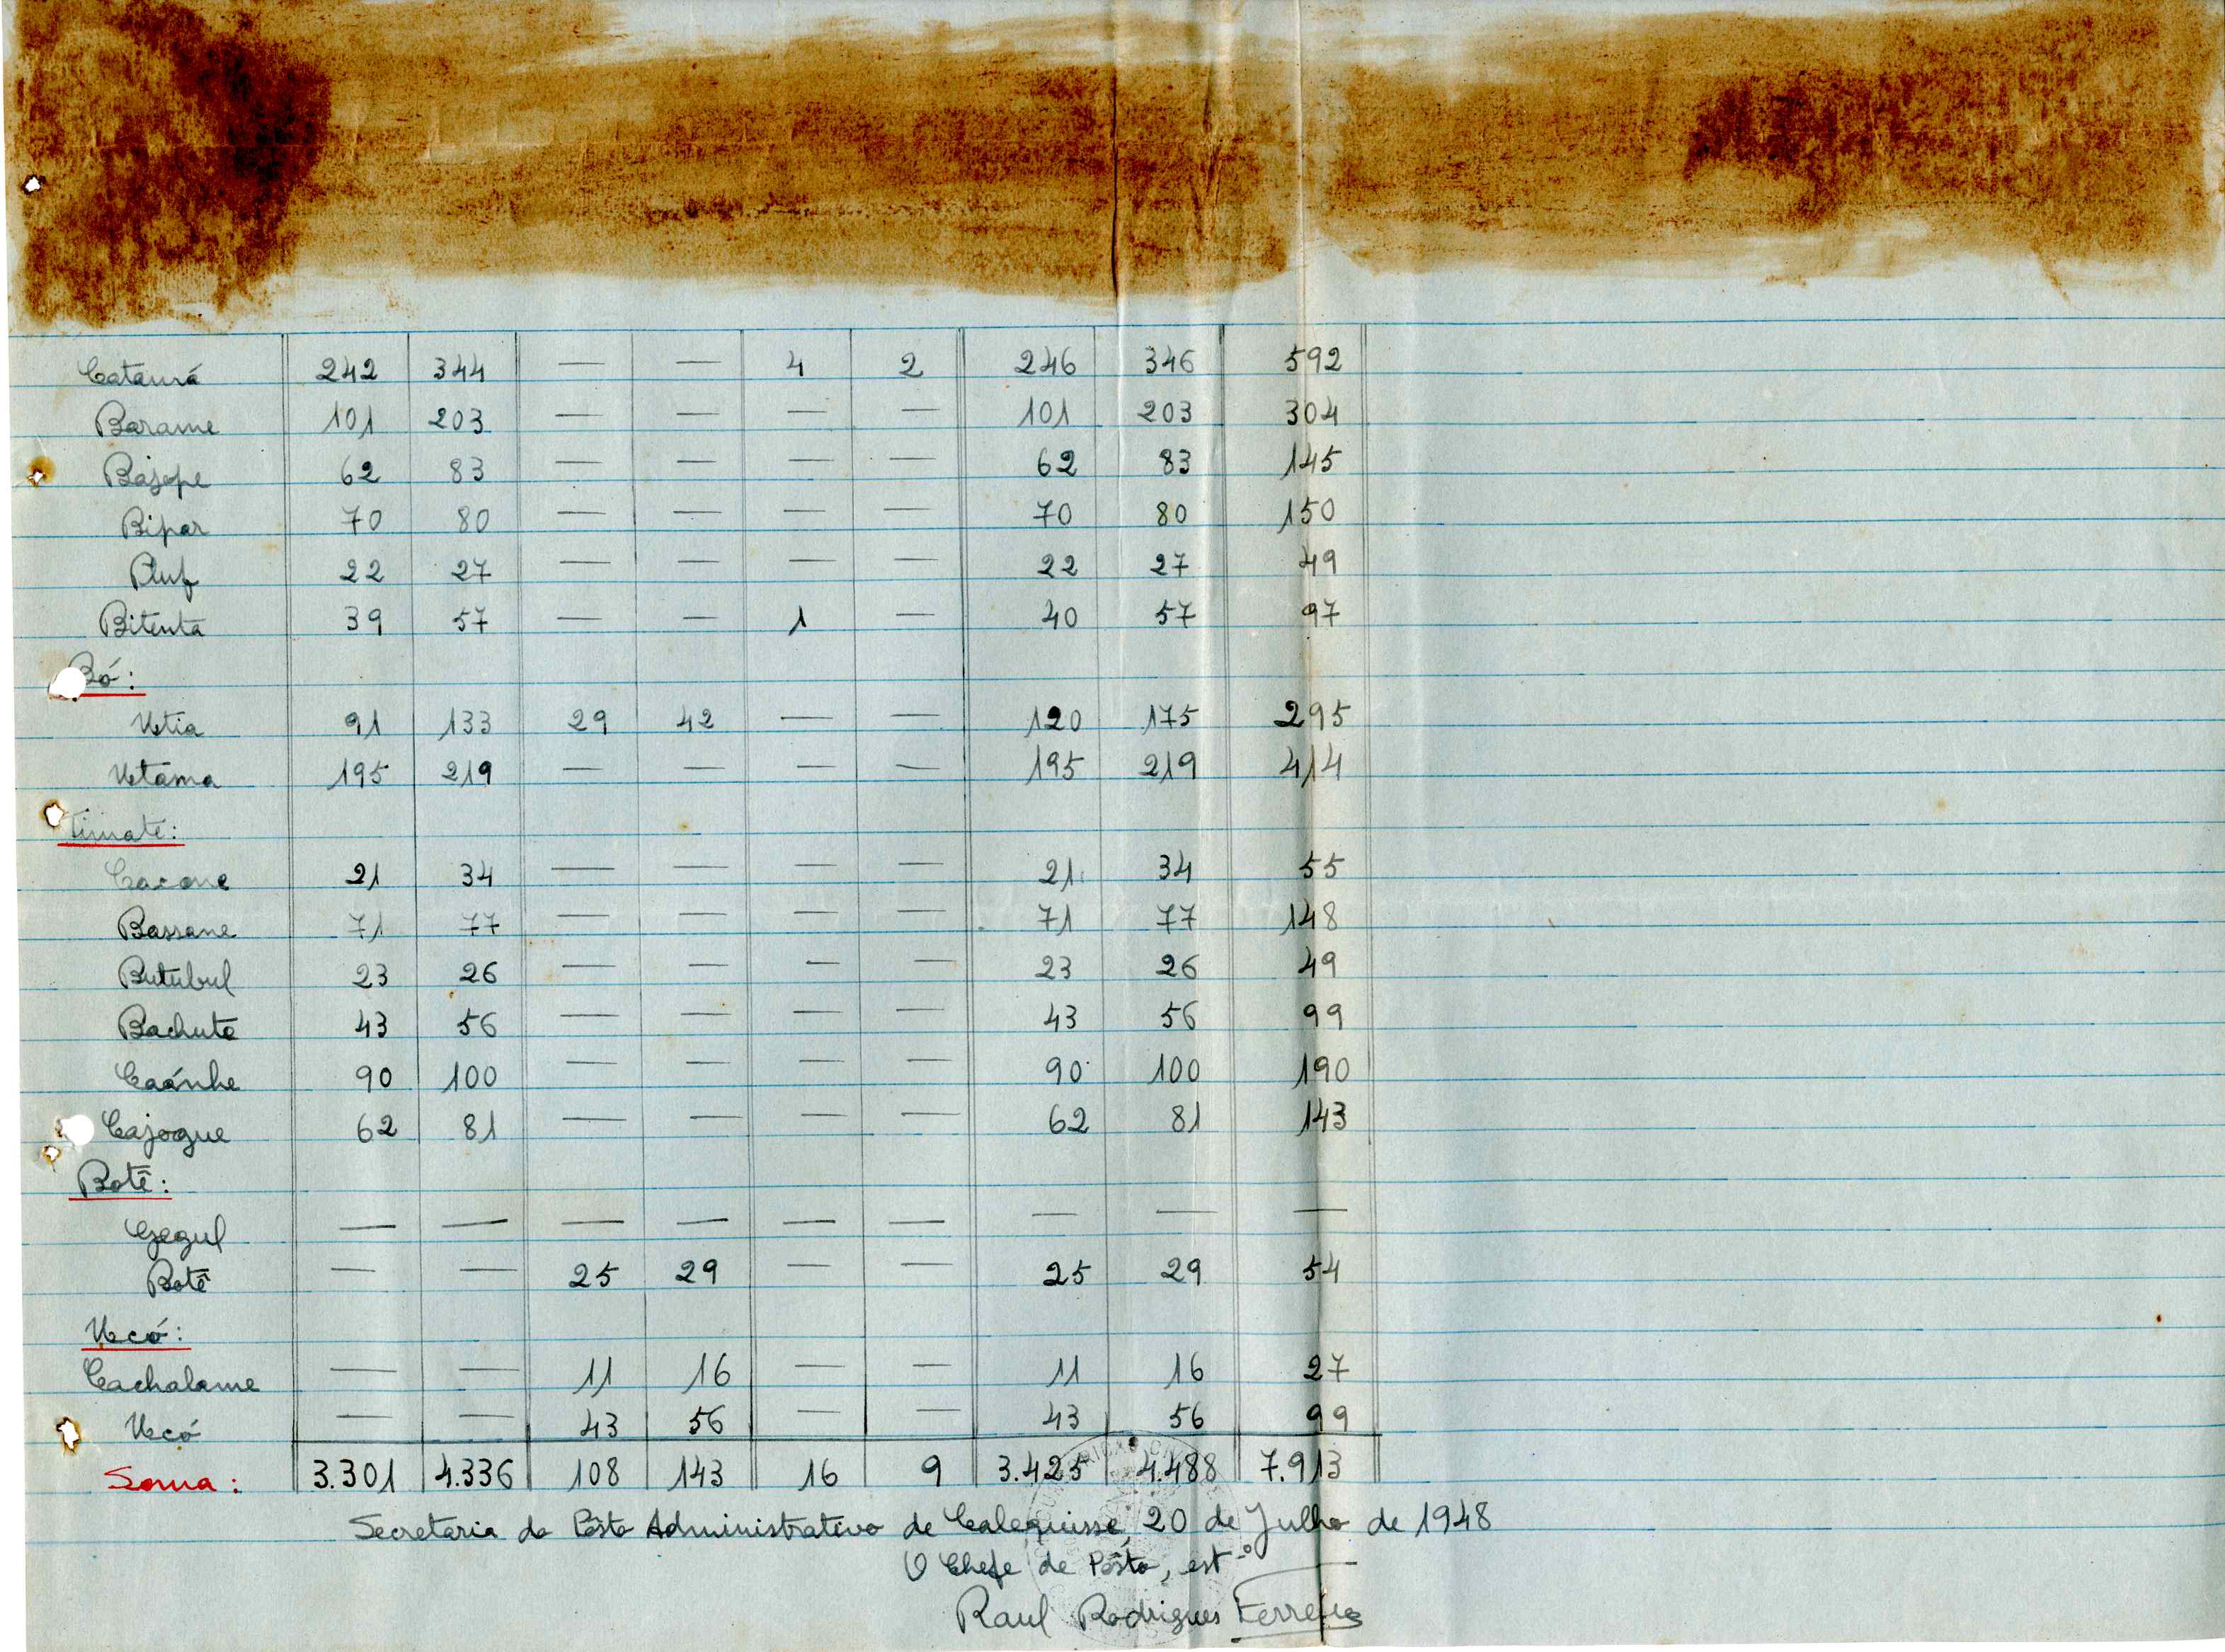 Catamá 242 344 — — 4 2 246 346 592
Barame 101 203 — — — — 101 203 304
Bajope 62 83 — — — — 62 83 145
Bipar 70 80 — — — — 70 80 150
22 27 — — — — 22 27 49
Bitenta 39 57 — — 1 — 40 57 97
Bó:
Utia 91 133 29 42 — — 120 175 295
Utama 195 219 — — — — 195 219 414
Timate:
Cacone 21 34 — — — — 21 34 55
Bassane 71 77 — — — — 71 77 148
Butubul 23 26 — — — — 23 26 49
Bachute 43 56 — — — — 43 56 99
Caánhe 90 100 — — — — 90 100 190
Cajogue 62 81 — — — — 62 81 143
Botê:
Gegul — — — — — — — — —
Botê — — 25 29 — — 25 29 54
Ucó:
Cachalame — — 11 16 — — 11 16 27
Ucó — — 43 56 — — 43 56 99
Soma: 3.301 4.336 108 143 16 9 3.425 4.488 7.913
Secretaria do Pôsto Administrativo de Calequisse, 20 de Julho de 1948
O Chefe de Pôsto, est.º
Raul Rodrigues Ferreira